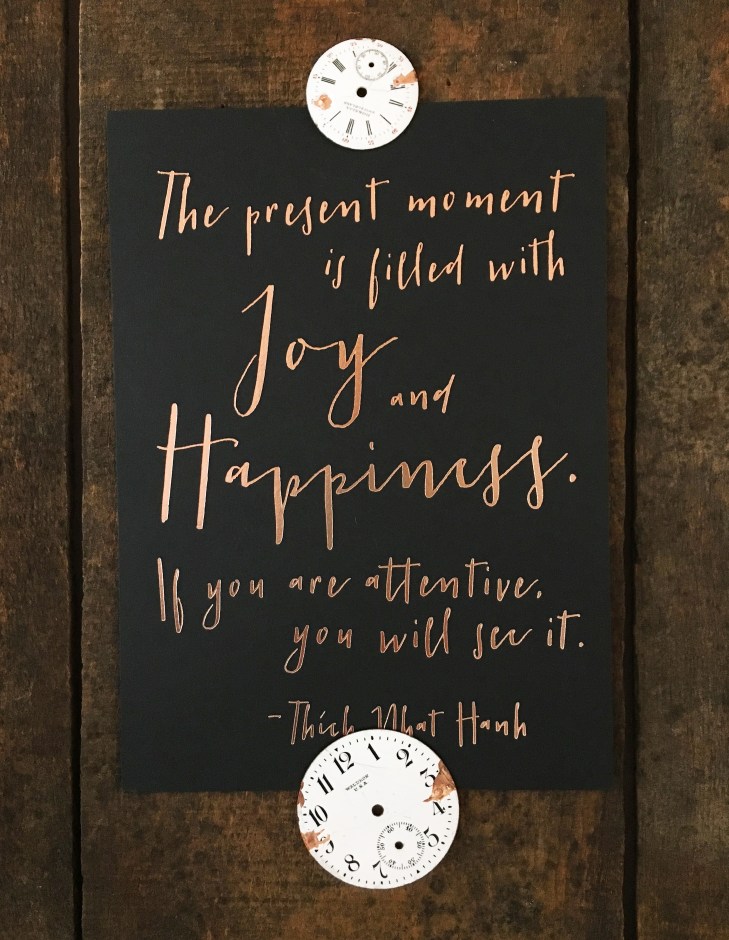 The present moment
is filled with
Joy
and
Happiness.
If you are attentive,
you will see it.
-Thich Nhat Hanh
12
1
2
4
5
7
8
9
10
11
60